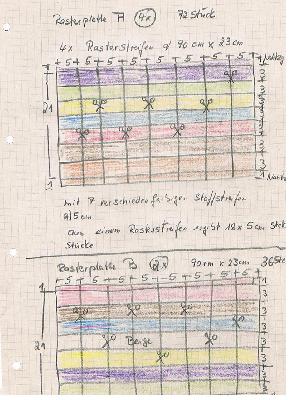 Rasterplatte A 4x 72 Stück
4x Rasterstreifen á 90 cm x 23 cm
+ 5 + 5 + 5 + 5 + 5 + 5 + 5 +
1 Nahtzg
3
3
3
21
3
3
3
3
1
1
mit 7 verschiedenfarbigen Stoffstreifen
á 5 cm
aus einem Rasterstreifen ergibt 12 x 5 cm
Stücke
Rasterplatte B 2x 90 cm x 23 cm 36
+ 5 + 5 + 5 + 5 + 5 + 5 + 5 +
1
1
3
3
3
21
Beige
3
3
3